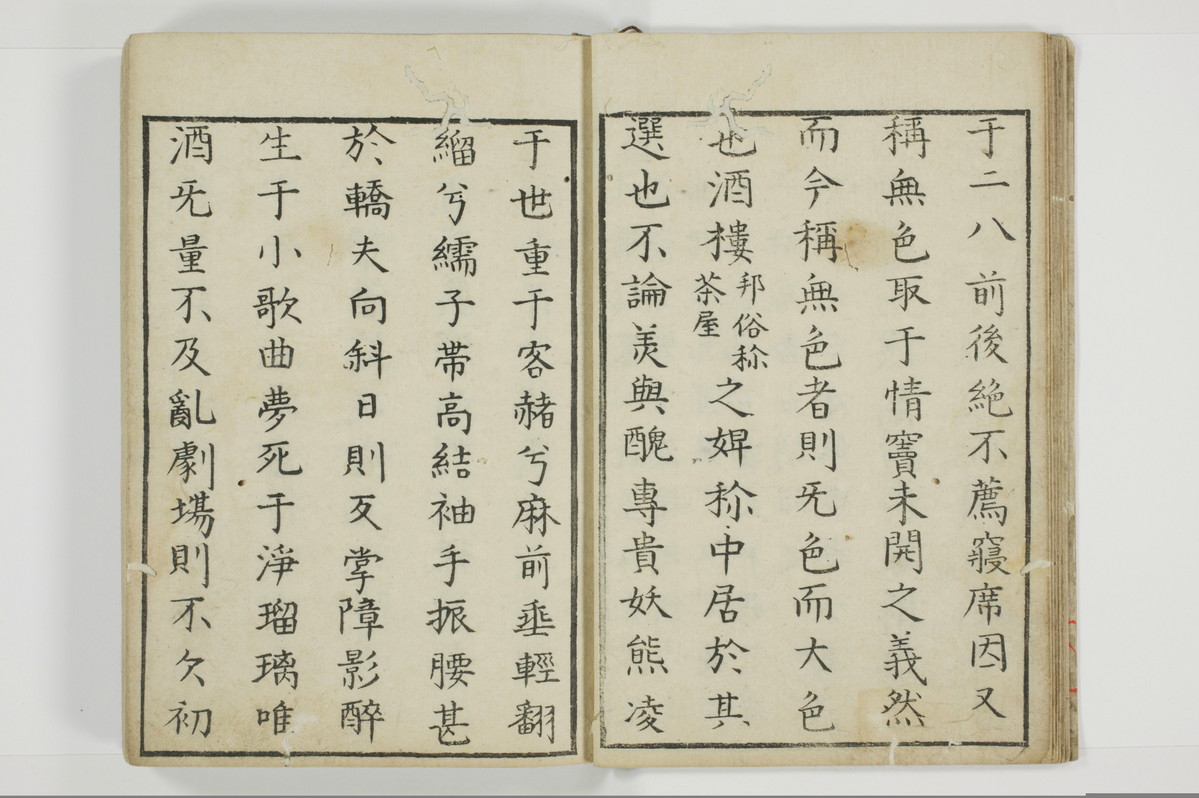 于二八前後絶不薦寢席因又
稱無色取于情竇未開之義然
而今稱無色者則旡色而大色
也酒樓邦俗称茶屋之婢称中居於其
選也不論美與醜專貴妖態凌
于世重于客赭兮麻前垂輕翻
縚兮繻子帯高結袖手振腰甚
於轎夫向斜日則反掌障影醉
生于小歌曲夢死于淨瑠璃唯
酒旡量不及亂劇場則不欠初